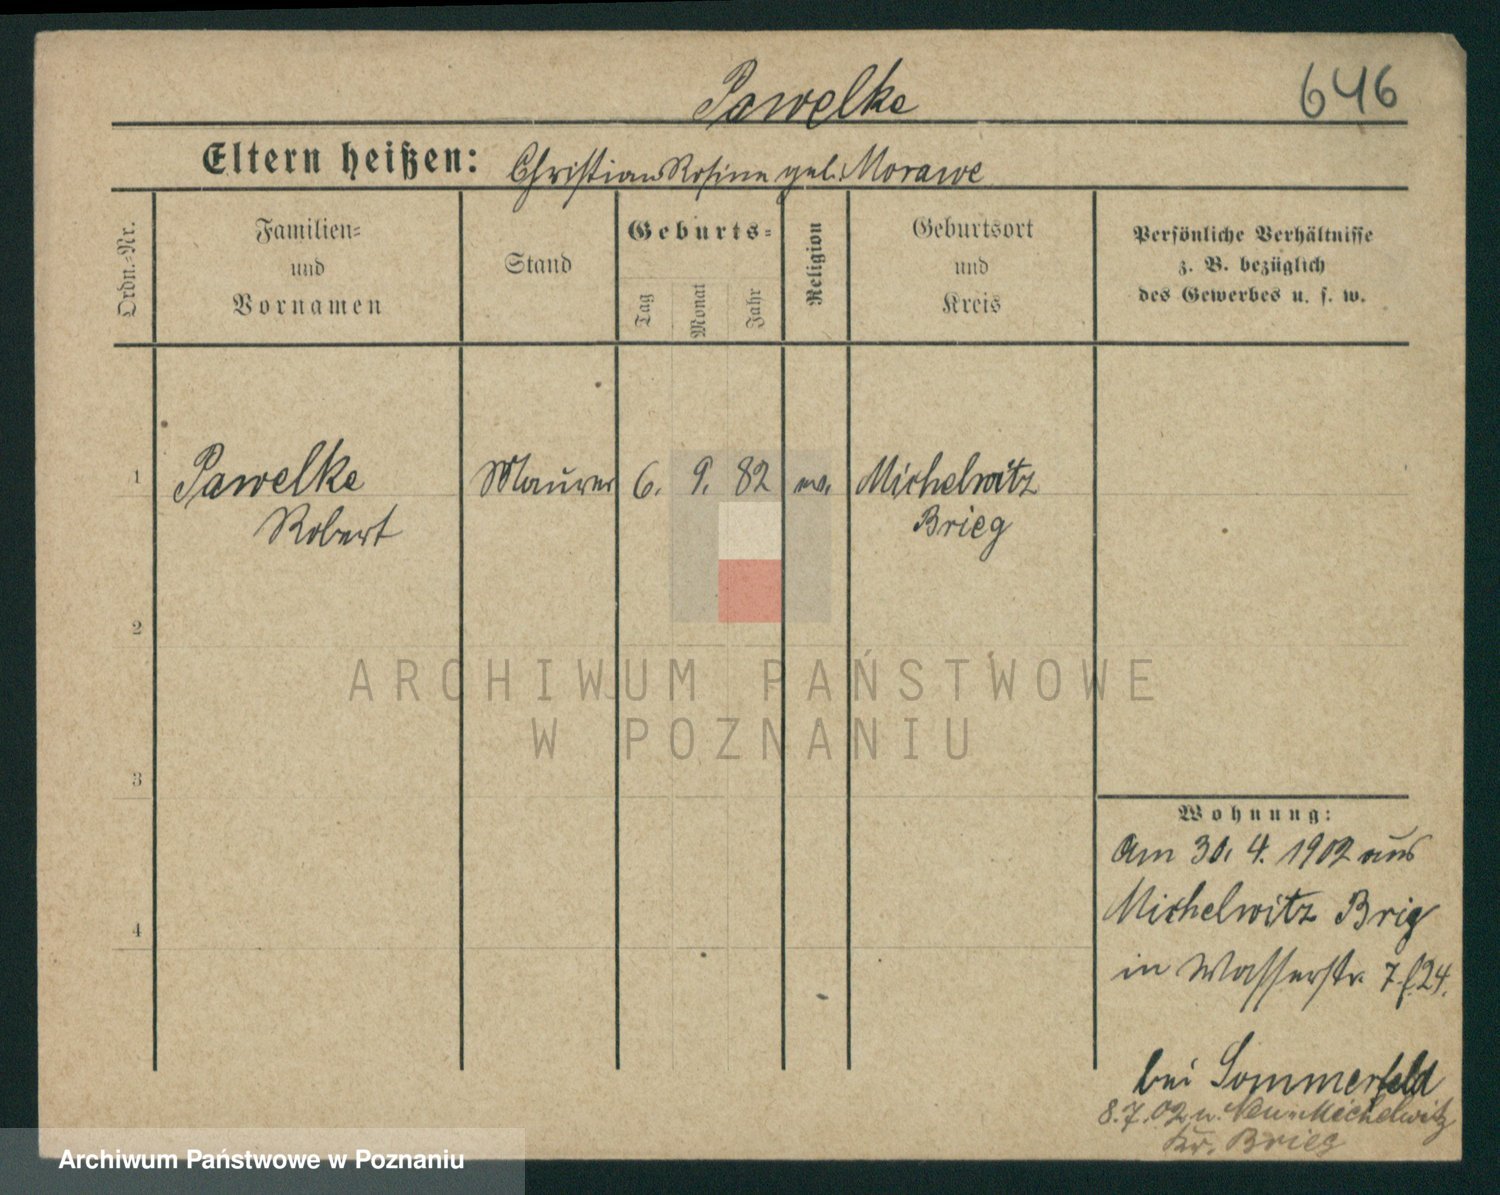 Pawelke
646
Eltern heißen: Christian Rosine geb. Morawe
Ordn.-Nr.
Familien-
und
Vornamen
Stand
Geburts-
Tag
Monat
Jahr
Religion
Geburtsort
und
Kreis
Persönliche Verhältnisse
z. B. bezüglich
des Gewerbes u. s. w.
1
Pawelke
Robert
Maurer
6. 9. 82
ev.
Michelwitz
Brieg
2
ARCHIWUM PAŃSTWOWE
W POZNANIU
3
Wohnung:
Am 30. 4. 1902 aus
Michelwitz Brig
4
in Wasserstr. 7 f. 24.
bei Sommerfeld
8.7.02 n. Neu-Michelwitz
Kr. Brieg
Archiwum Państwowe w Poznaniu